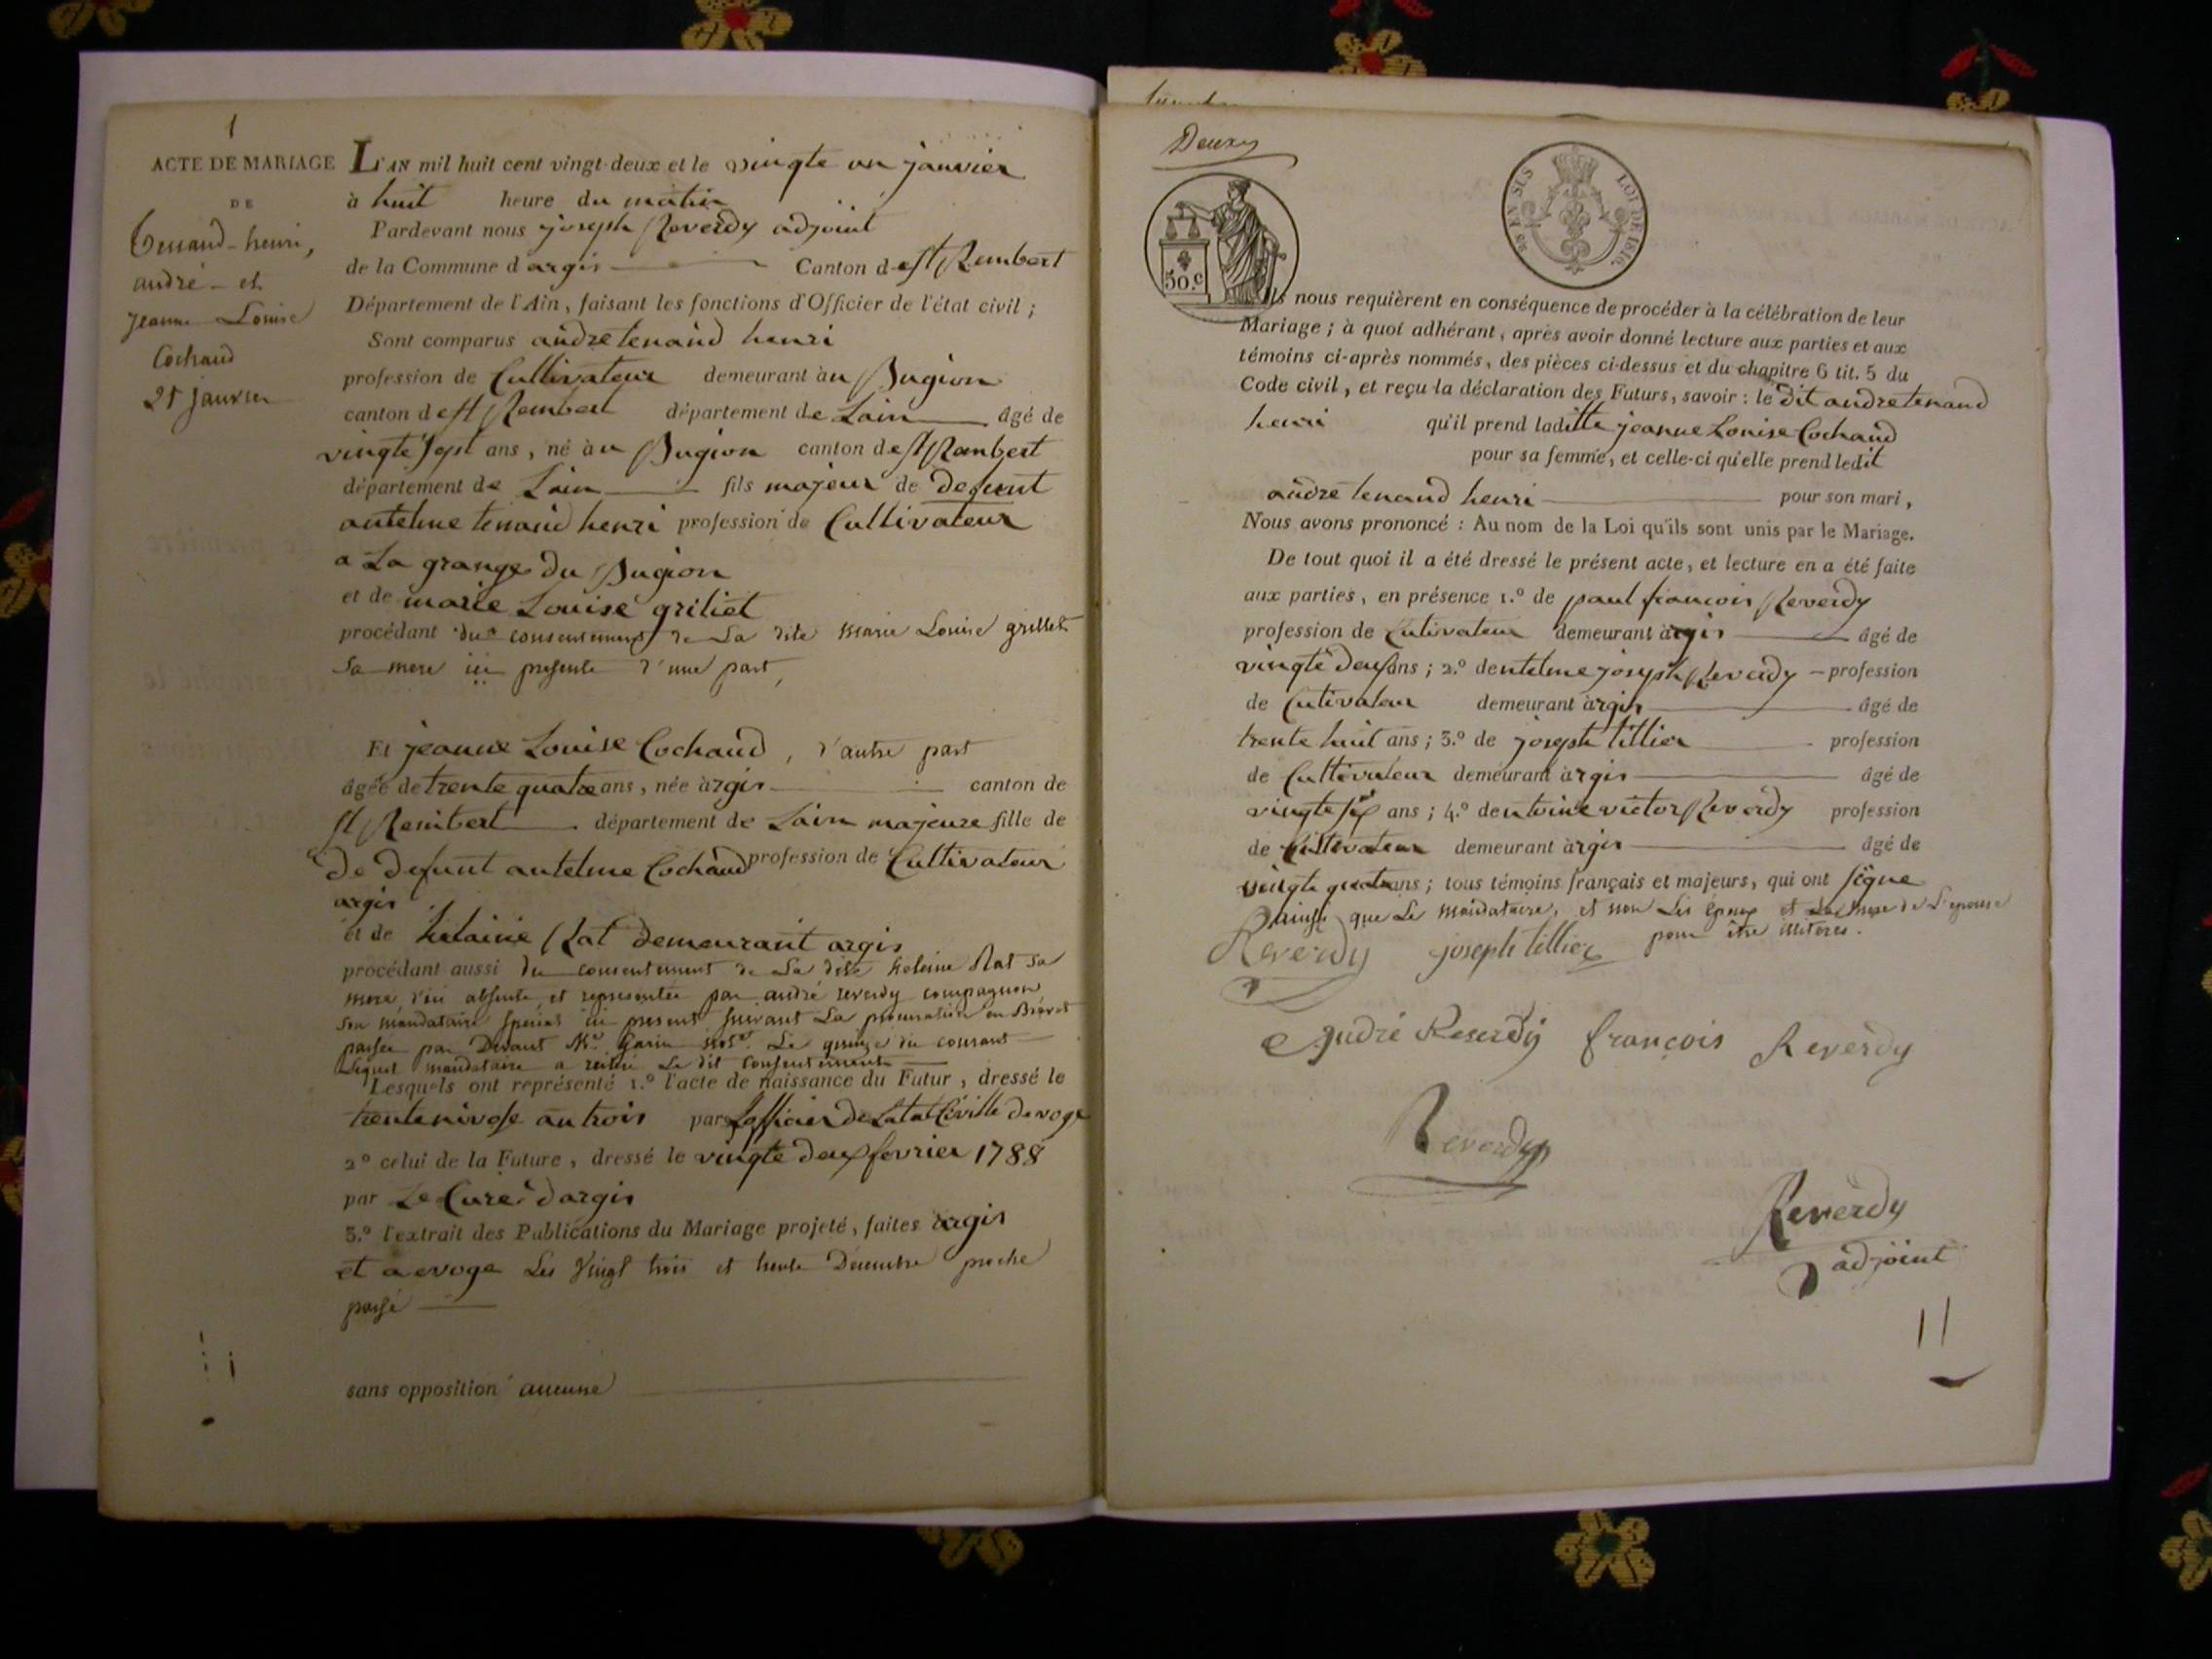 1
ACTE DE MARIAGE
DE
Tenand-henri,
andré - et
jeanne Louise
Cochaud
21 janvier
L'AN mil huit cent vingt-deux et le vingte un janvier
à huit heure du matin
Pardevant nous joseph Reverdy adjoint
de la Commune d argis Canton de st Rembert
Département de l'Ain, faisant les fonctions d'Officier de l'état civil ;
Sont comparus andre tenand henri
profession de Cultivateur demeurant àu Pugion
canton de st Rembert département de Lain âgé de
vingte sept ans, né àu Pugion canton de st Rambert
département de Lain fils majeur de defunt
antelme tenand henri profession de Cultivateur
a La grange du Pugion
et de marie Louise griliet
procédant du consentement de La dite marie Louise grillet
Sa mere ici presente d'une part,
Et jeanne Louise Cochaud, d'autre part
âgée de trente quatre ans, née àrgis canton de
st Rembert département de Lain majeure fille de
De defunt antelme Cochaud profession de Cultivateur
argis
et de helaine Rat demeurant argis
procédant aussi du consentement de La dite heleine Rat sa
mere, ici absente et representée par andré reverdy compagnon
Son mandataire special ici present suivant La procuration en Brevet
passée par Devant Me. Garin not. Le quinze du courant
Lequel mandataire a reitéré Le dit Consentement
Lesquels ont représenté 1.º l'acte de naissance du Futur, dressé le
trente nivose an trois par Lofficier de Letat Civille devoge
2º celui de la Future, dressé le vingte deux fevrier 1788
par Le Curé dargis
3.º l'extrait des Publications du Mariage projeté, faites àrgis
et a evoge Les Vingt trois et trente Decembre proche
passé
sans opposition aucune
Deux
50.c
LOI DE 1816.
Ils nous requièrent en conséquence de procéder à la célébration de leur
Mariage ; à quoi adhérant, après avoir donné lecture aux parties et aux
témoins ci-après nommés, des pièces ci-dessus et du chapitre 6 tit. 5 du
Code civil, et reçu la déclaration des Futurs, savoir : le dit andre tenand
henri qu'il prend laditte jeanne Louise Cochaud
pour sa femme, et celle-ci qu'elle prend ledit
andre tenand henri pour son mari,
Nous avons prononcé : Au nom de la Loi qu'ils sont unis par le Mariage.
De tout quoi il a été dressé le présent acte, et lecture en a été faite
aux parties, en présence 1.º de paul francois Reverdy
profession de Cutivateur demeurant àrgis âgé de
vingte deux ans ; 2.º dentelme joseph Reverdy profession
de Cutivateur demeurant àrgis âgé de
trente huit ans ; 3.º de joseph tillier profession
de Cultivateur demeurant àrgis âgé de
vingte six ans ; 4.º dentoine victor Reverdy profession
de Cultivateur demeurant àrgis âgé de
vingte quatre ans ; tous témoins français et majeurs, qui ont signe
ainsi que Le mandataire, et non Les epoux et La mere de L'epouse
pour être illiterés.
Reverdy joseph tillier
André Reverdy françois Reverdy
Reverdy
Reverdy
adjoint